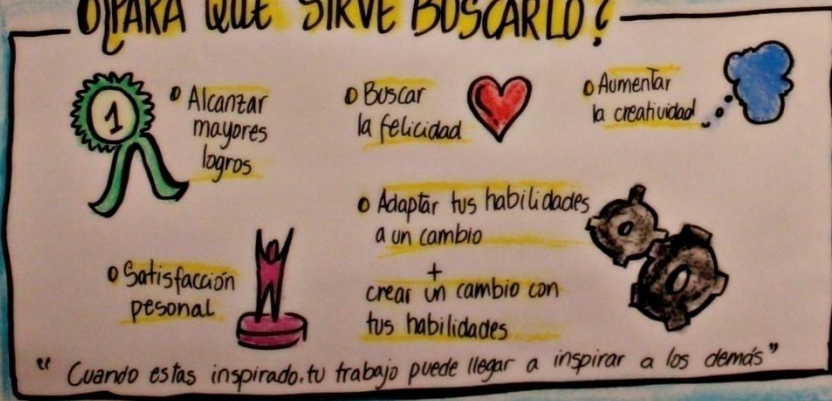 ¿PARA QUE SIRVE BUSCARLO?
1
Alcanzar
mayores
logros
Buscar
la felicidad
Aumentar
la creatividad
Adaptar tus habilidades
a un cambio
+
crear un cambio con
tus habilidades
Satisfacción
pesonal
"Cuando estas inspirado.tu trabajo puede llegar a inspirar a los demás"